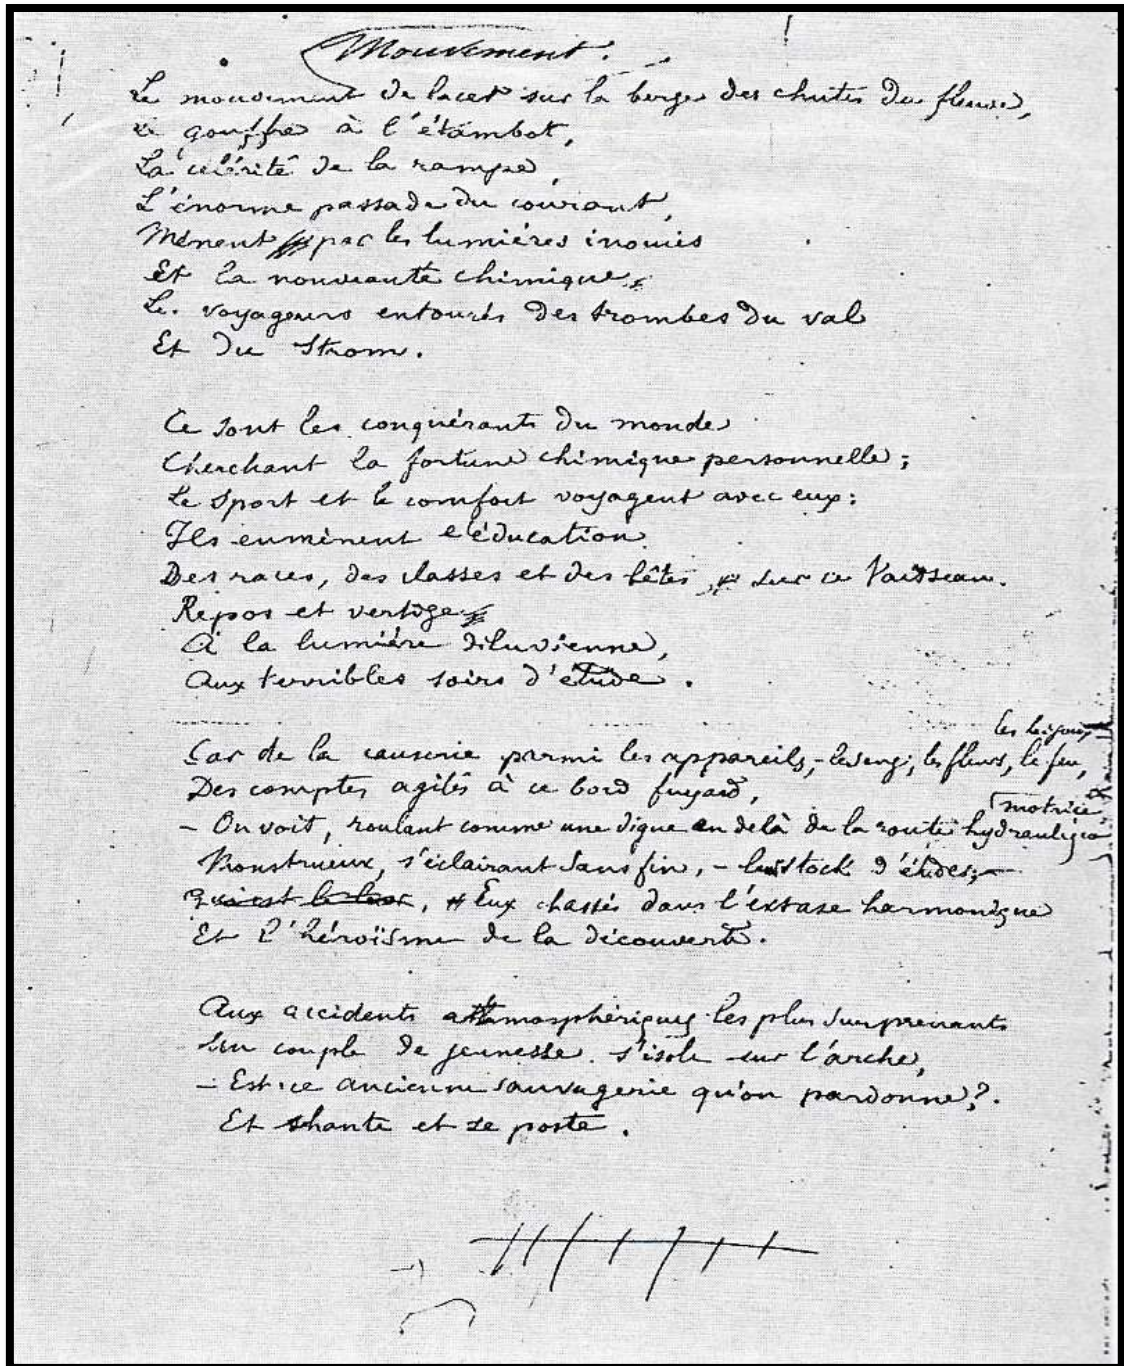 Mouvement.
Le mouvement de lacet sur la berge des chutes du fleuve,
Le gouffre à l'étambot,
La célérité de la rampe,
L'énorme passade du courant,
Mènent par les lumières inouies
Et la nouveauté chimique
Les voyageurs entourés des trombes du val
Et du Strom.
Ce sont les conquérants du monde
Cherchant la fortune chimique personnelle;
Le sport et le comfort voyagent avec eux:
Ils emmènent l'éducation
Des races, des classes et des bêtes, sur ce Vaisseau.
Repos et vertige
A la lumière diluvienne,
Aux terribles soirs d'étude.
les bijoux
Car de la causerie parmi les appareils, - le sang; les fleurs, le feu,
Des comptes agités à ce bord fuyard,
motrice,
- On voit, roulant comme une digue au delà de la route hydraulique
Monstrueux, s'éclairant sans fin, - leur stock d'études; -
Eux chassés dans l'extase harmonique
Et l'héroïsme de la découverte.
Aux accidents atmosphériques les plus surprenants
Un couple de jeunesse s'isole sur l'arche,
- Est-ce ancienne sauvagerie qu'on pardonne? -
Et chante et se poste.